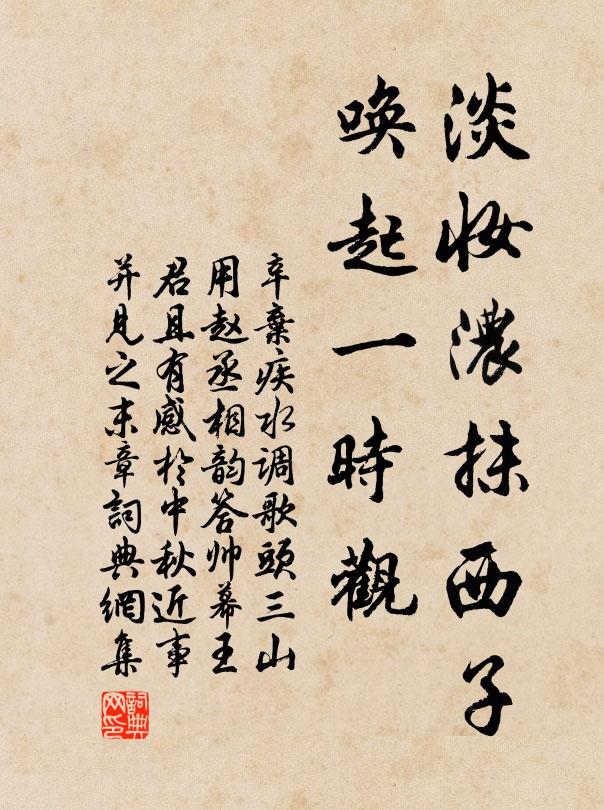 淡妆濃抹西子
唤起一時觀
辛棄疾水调歌頭三山
用赵丞相韵答帅幕王
君且有感於中秋近事
并见之末章詞典網集
詞典
网印